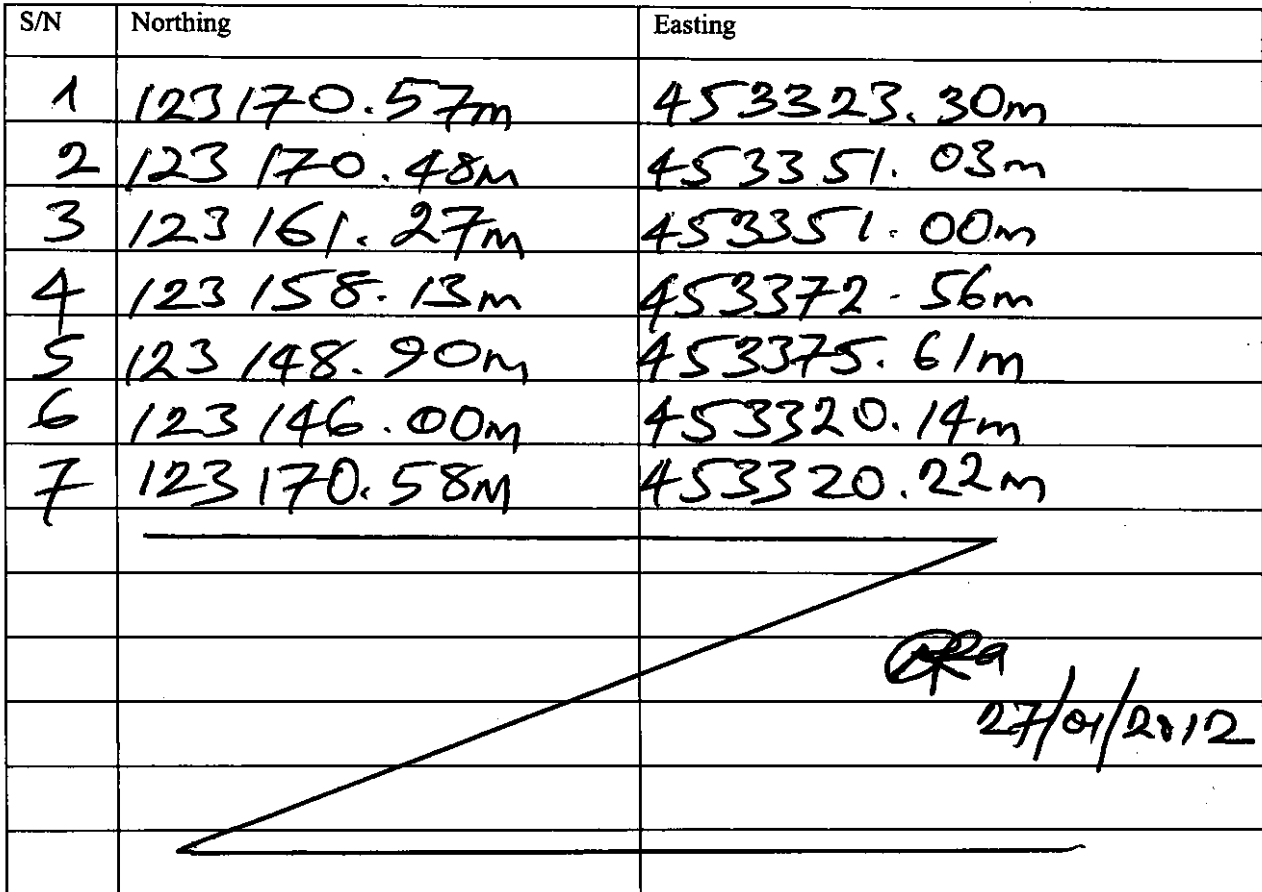 S/N Northing Easting
1 123170.57m 453323.30m
2 123170.48m 453351.03m
3 123161.27m 453351.00m
4 123158.13m 453372.56m
5 123148.90m 453375.61m
6 123146.00m 453320.14m
7 123170.58m 453320.22m
27/01/2012